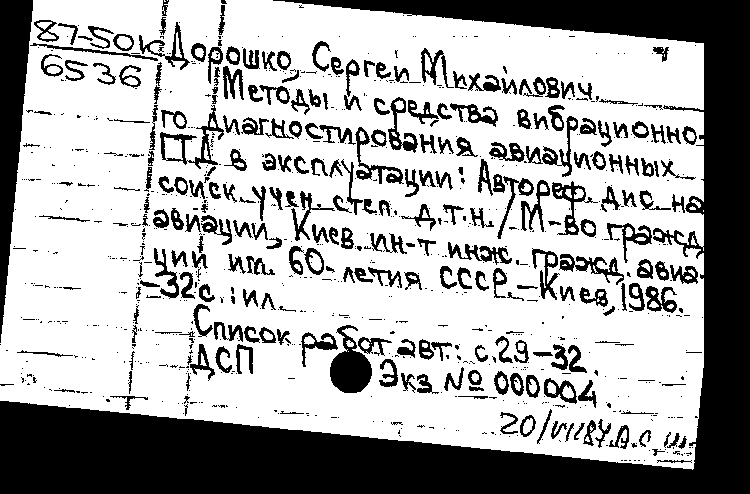 87-50к
6536
Дорошко, Сергей Михайлович.
Методы и средства вибрационно-
го диагностирования авиационных
ГТД в эксплуатации: Автореф. дис. на
соиск. учен. степ. д.т.н. / М-во гражд.
авиации, Киев. ин-т инж. гражд. авиа-
ции им. 60-летия СССР. - Киев, 1986.
-32с.: ил.
Список работ авт.: с.29-32.
ДСП Экз № 000004.
20/VII87